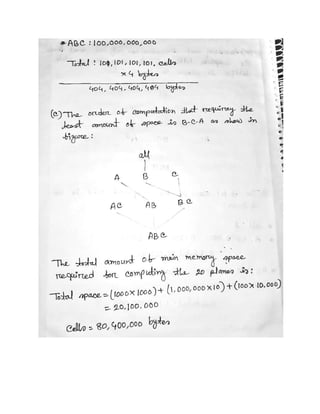 * ABC : 100,000,000,000
Total : 101,101,101,101, cells
x 4 bytes
404, 404, 404, 404 bytes
(c) The order of computation that requires the
least amount of space is B-C-A as show in
figure :
all
A B C
AC AB BC
ABC
The total amount of main memory space
required for computing the 2D planes is :
Total space = (1000 x 1000) + (1,000,000 x 10) + (100 x 10,000)
= 20,100,000
Cells = 80,400,000 bytes